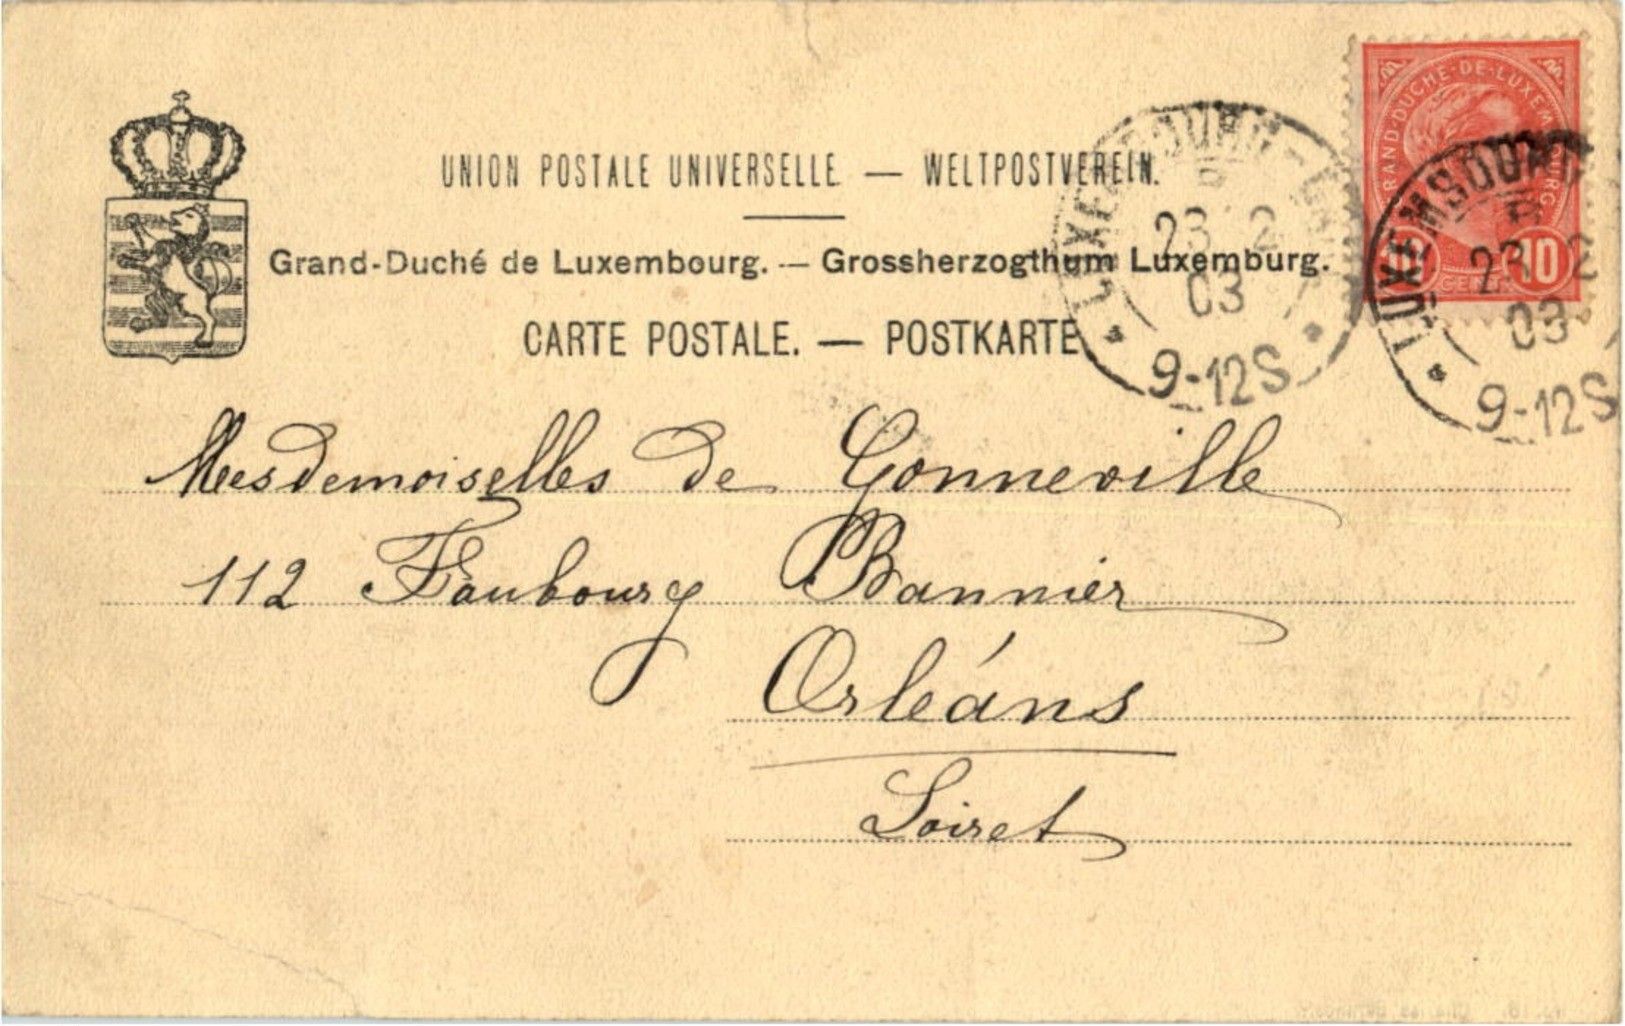 UNION POSTALE UNIVERSELLE — WELTPOSTVEREIN.
Grand-Duché de Luxembourg. — Grossherzogthum Luxemburg.
CARTE POSTALE. — POSTKARTE
GRAND-DUCHÉ-DE-LUXEMBOURG
10 CENT. 10
LUXEMBOURG
23 2
03
9-12S
LUXEMBOURG
23 2
03
9-12S
Mesdemoiselles de Gonneville
112 Faubourg Bannier
Orléans
Loiret